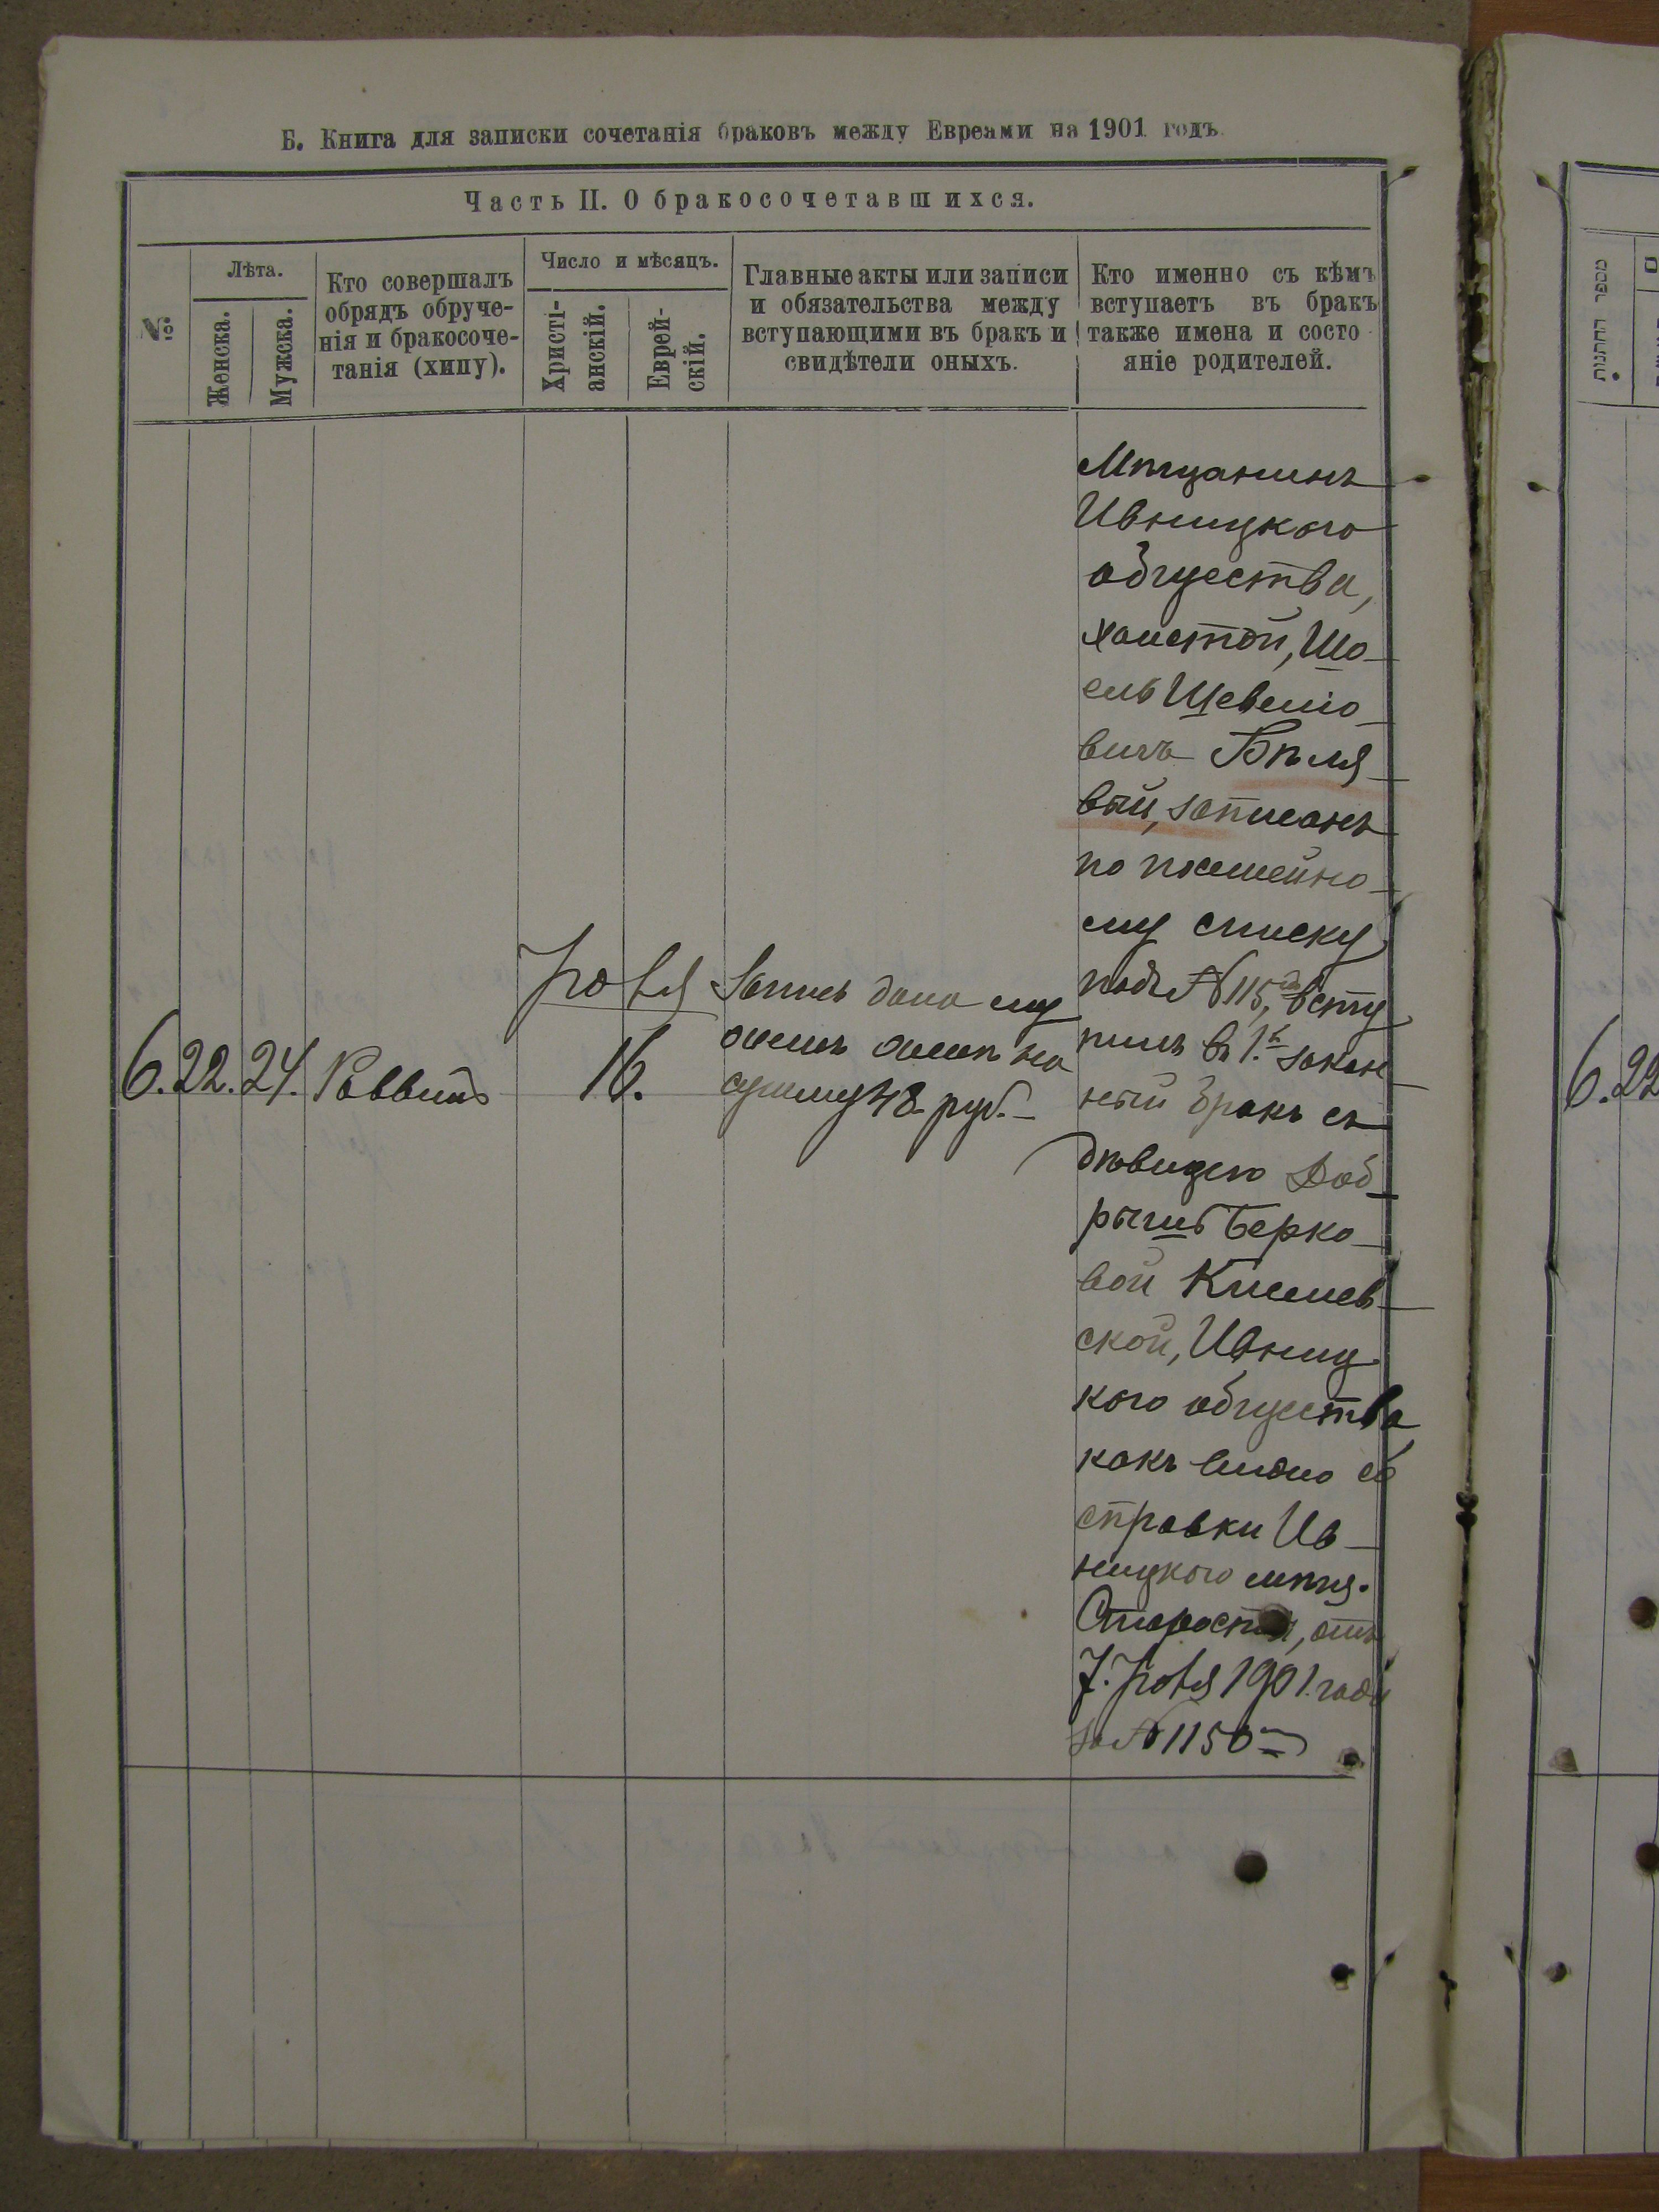 Б. Книга для записки сочетанія браковъ между Евреями на 1901 годъ
Часть II. О бракосочетавшихся.
№
Лѣта.
Женска.
Мужска.
Кто совершалъ
обрядъ обруче-
нія и бракосоче-
танія (хипу).
Число и мѣсяцъ.
Христі-
анскій.
Еврей-
скій.
Главные акты или записи
и обязательства между
вступающими въ бракъ и
свидѣтели оныхъ.
Кто именно съ кѣмъ
вступаетъ въ бракъ
также имена и состо
яніе родителей.
6. 22. 24. Раввинъ
16.
Запись дана
на
сумму 48 руб.
Мѣщанинъ
Ивницкого
общества,
холстой, Шо-
ель Шевелio-
вичъ Бѣля-
вый, записанъ
по посемейно-
му списку
подъ № 115, всту
пилъ в 1.й закон-
ный бракъ съ
дѣвицею Доб-
рышъ Берко-
вой Кишев-
ской, Ивниц
кого общества
какъ видно съ
справки Ив-
ницкого мѣщ.
Старосты, отъ
7. 1901 года
за № 1150
מספר החתונות
6. 22